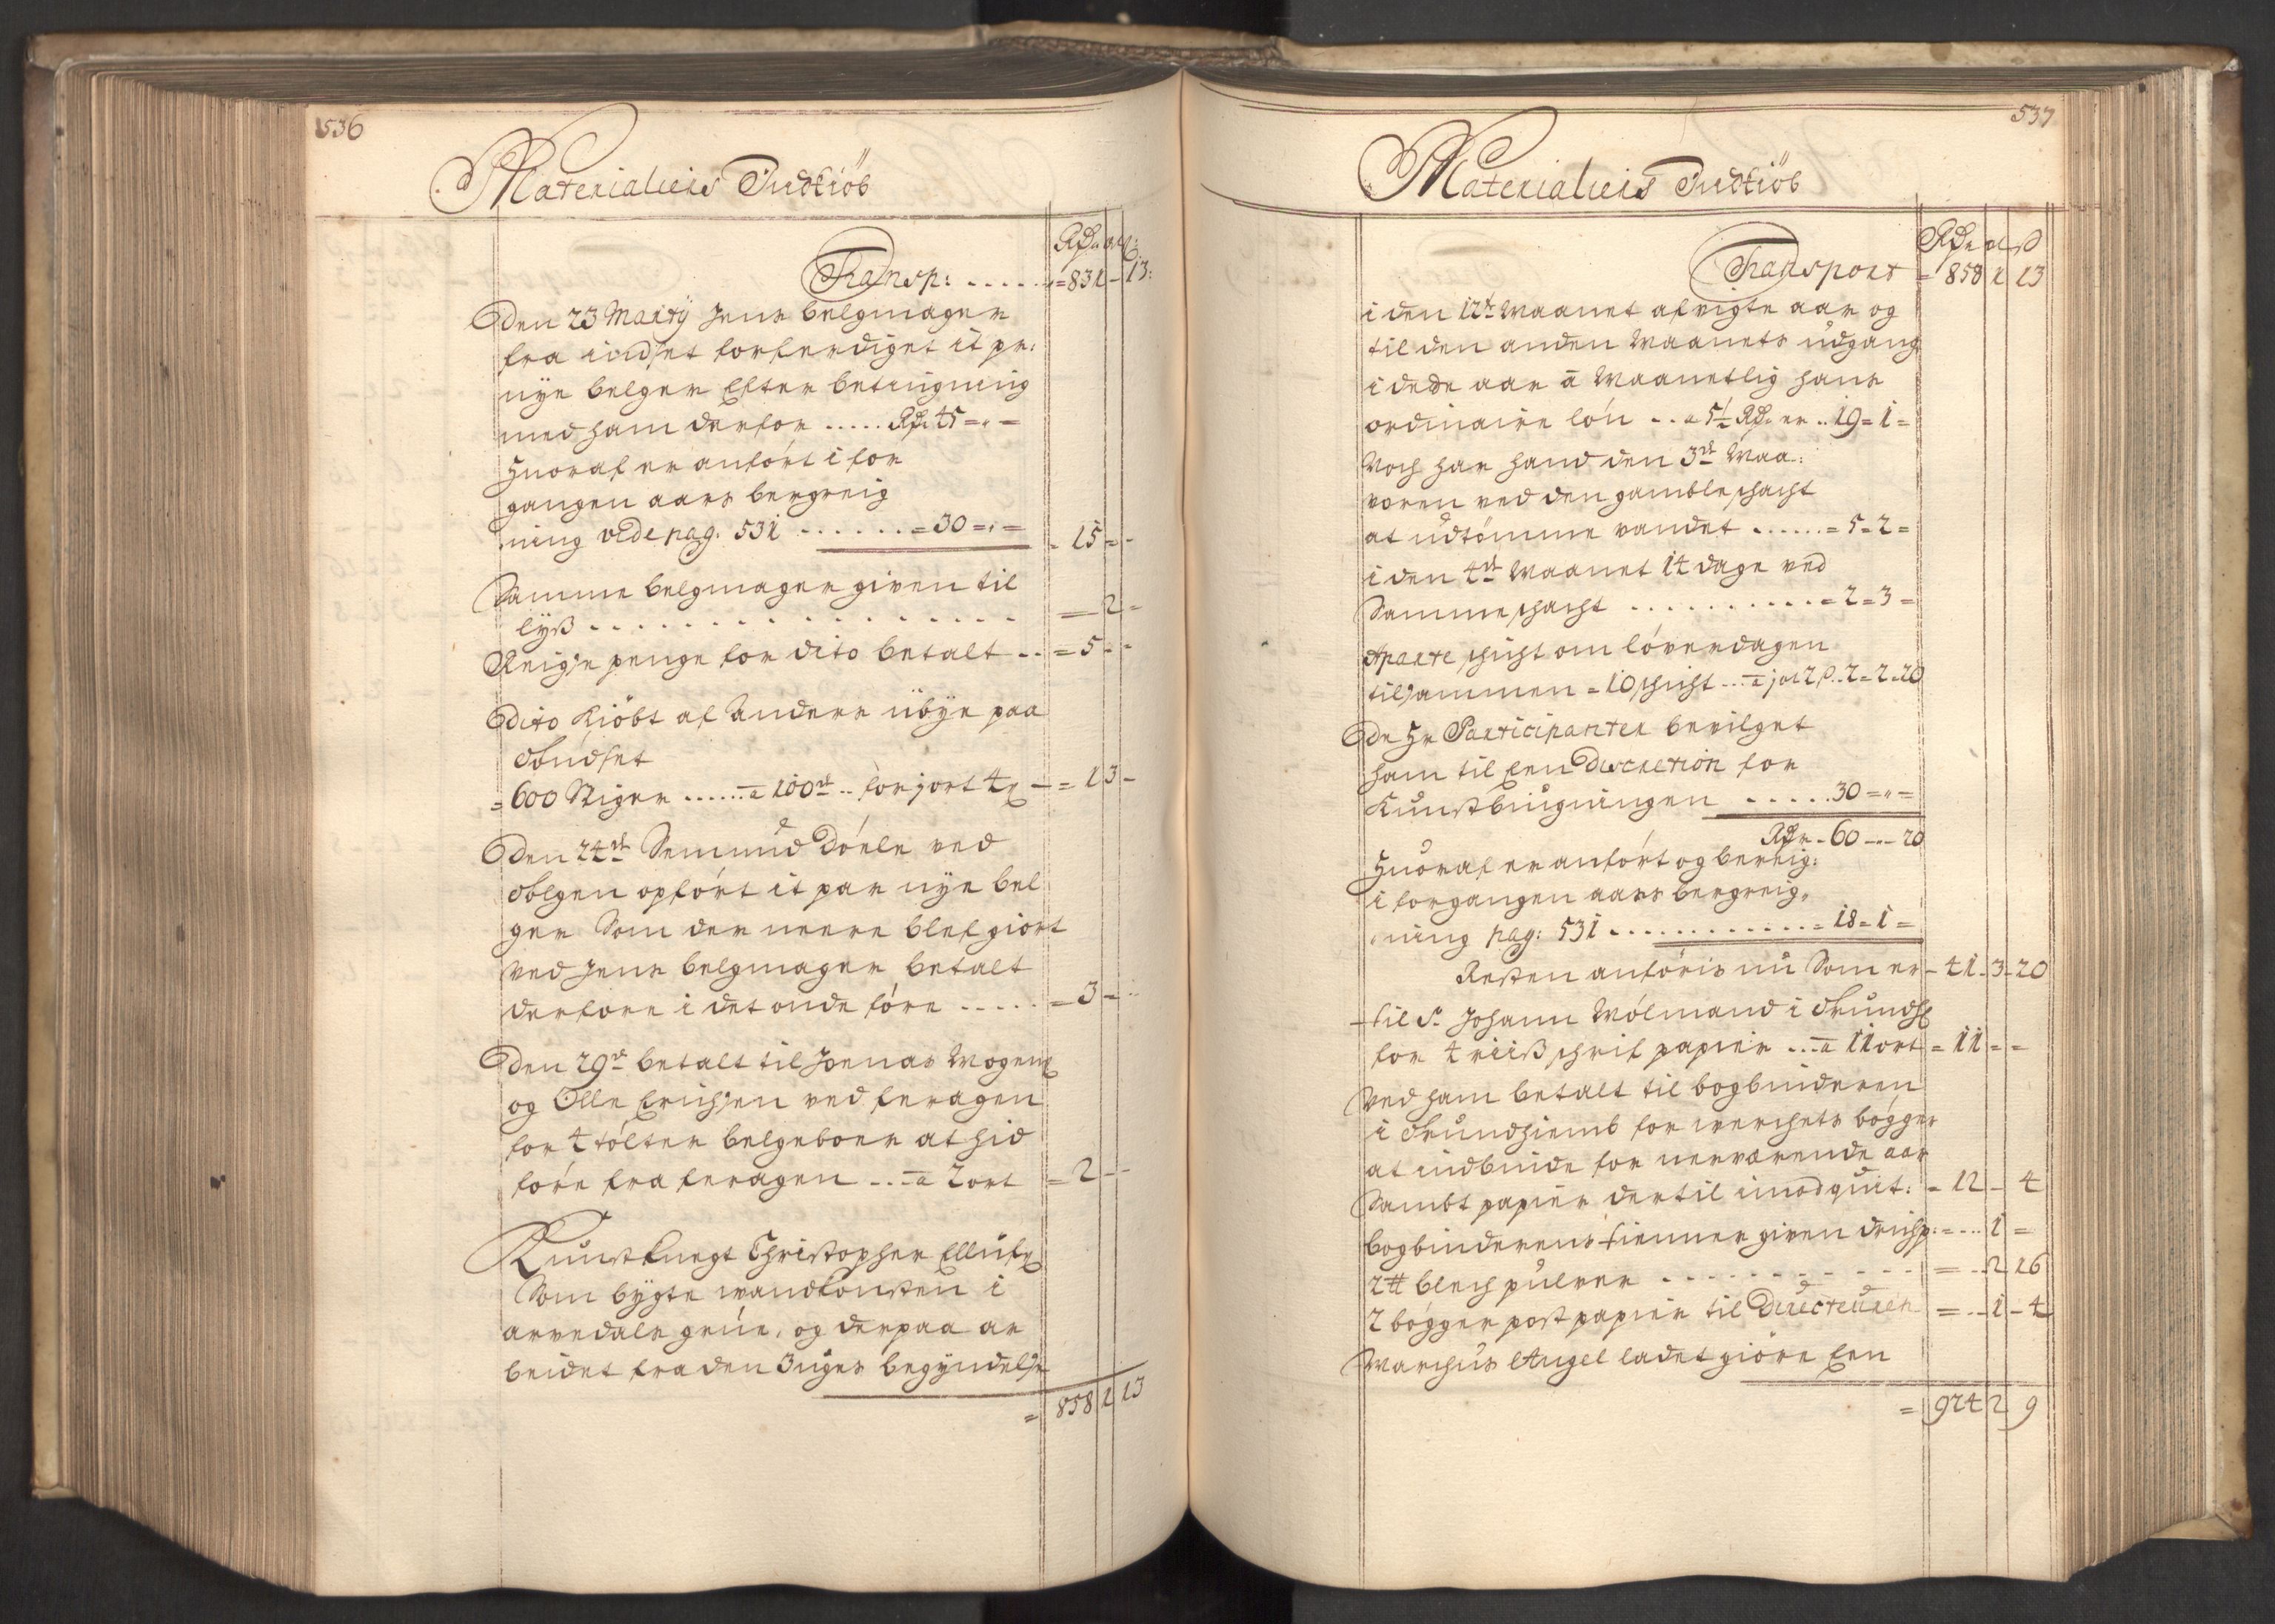 536
Materialiers Indkiöb
Rdr. ort ß:
Transp: . . . . . =831 - 13:
Den 23 Marty Jens belgmager
fra indset forferdiget it pr:
nye belger Efter betingning
med ham derfor . . . . . Rdr 45 = " =
Huoraf er anfört i for
gangen aars bergreig
ning vide pag. 531 . . . . . . = 30 = " = - 15 = -
Samme belgmager given til
lyß . . . . . . . . . . . . . . . . — 2 -
Reigse penge for dito betalt . . = 5 - -
Dito Kiöbt af Anders übye paa
indset
= 600 Stiger . . . . . . a 100de . . for j ort 4 ß — = 1 3 -
Den 24de Semund Döele ved
Solgen opfört it par nye bel
ger Som der neere blef giort
ved Jens belgmager betalt
derfore i det onde före . . . . . = 3 - -
Den 29de betalt til Jonas Mogens
og Olle Erichsen ved feragen
for 4 tölter belgeboer at hid
före fra feragen . . . a 2 ort = 2 - -
Kunstknegt Christopher
Som bygte wandkonsten i
arvedals grue, og derpaa ar
beidet fra den 3 uges begyndelse
= 858 1 13
537
Materialiers Indkiöb
Rdr ort ß
Transport = 858 1 13
i den 12te Maanet afvigte aar og
til den anden Maanets udgang
i dede aar á Maanetlig hans
ordinaire lön . . a 5½ Rdr. er . . 19 = 1 =
Noch har hand den 3de Maa:
voren ved den gamble schacht
at udtömme vandet . . . . . . = 5 = 2 =
i den 4de Maanet 14 dage ved
Samme schacht . . . . . . . . . . = 2 = 3 =
Aparte schicht om löverdagen
tilsammen = 10 schicht . . . a j ort 2 ß . . 2 = 2 = 20
De Hr Participanter bevilget
ham til Een Discretion for
Kunstbiugningen . . . . . 30 = " =
Rdr - 60 — " — 20
Huoraf er anfört og bereig:
i forgangen aars bergreig,
ning pag: 531 . . . . . . . . . . . . . = 18 = 1 =
Resten anföris nu Som er - 41 - 3 - 20
til Sr. Johann Wölmand i Trundh:
for 4 riiß schrif papier . . . a 11 ort = 11 = =
Ved ham betalt til bogbinderen
i Trundhiemb for werchets bögger
at indbinde for nerværende aar
Sambt papier dertil imod quit: = 12 - 4
bogbinderens tienner given drichp: = . . . 1 =
2 # blech pulver . . . . . . . . . . . . = . . 2 16
2 bögger post papier til Directeuren = . . - 1 - 4
Marchus Angel ladet giöre Een
= 924 2 9